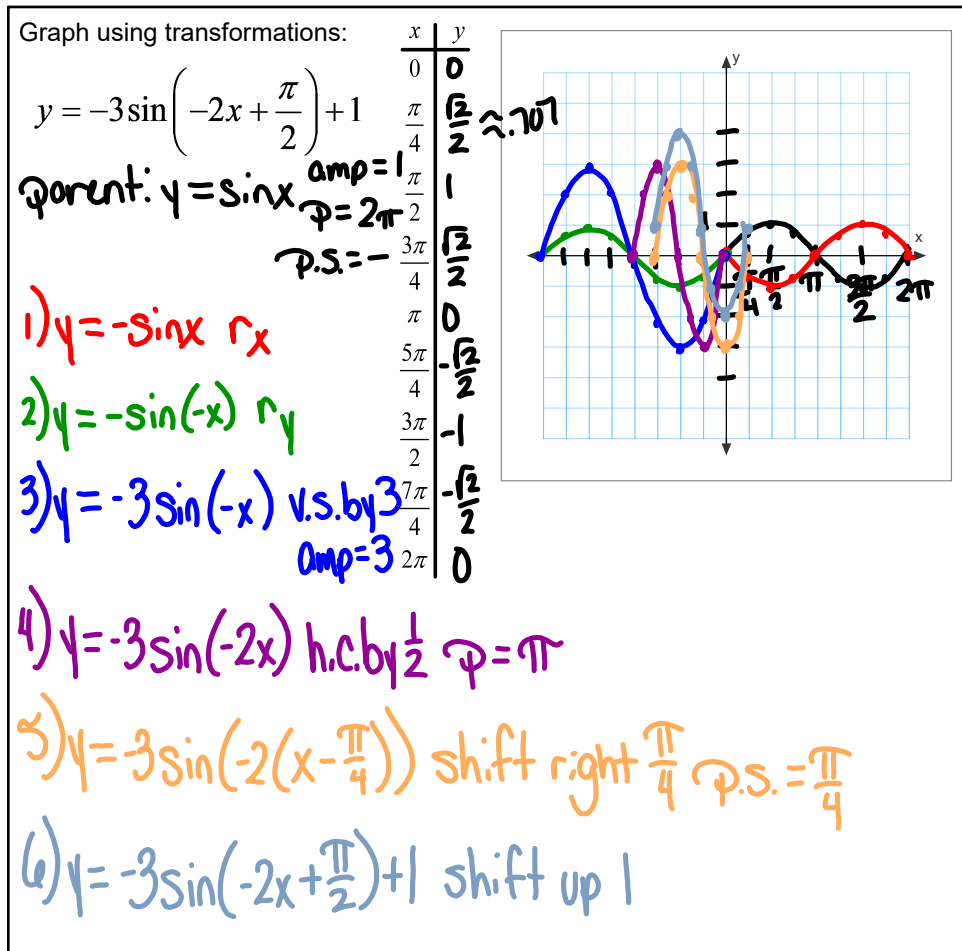 Graph using transformations:
y = −3sin(−2x + π/2) + 1
parent: y = sinx
amp = 1
p = 2π
p.s. = -
x y
0 0
π/4 √2/2 ≈.707
π/2 1
3π/4 √2/2
π 0
5π/4 -√2/2
3π/2 -1
7π/4 -√2/2
2π 0
1) y = -sinx rx
2) y = -sin(-x) ry
3) y = -3sin(-x) v.s. by 3
amp = 3
4) y = -3sin(-2x) h.c. by 1/2 p = π
5) y = -3sin(-2(x-π/4)) shift right π/4 p.s. = π/4
6) y = -3sin(-2x+π/2)+1 shift up 1
y
1
x
π/4 π/2 π 3π/2 2π